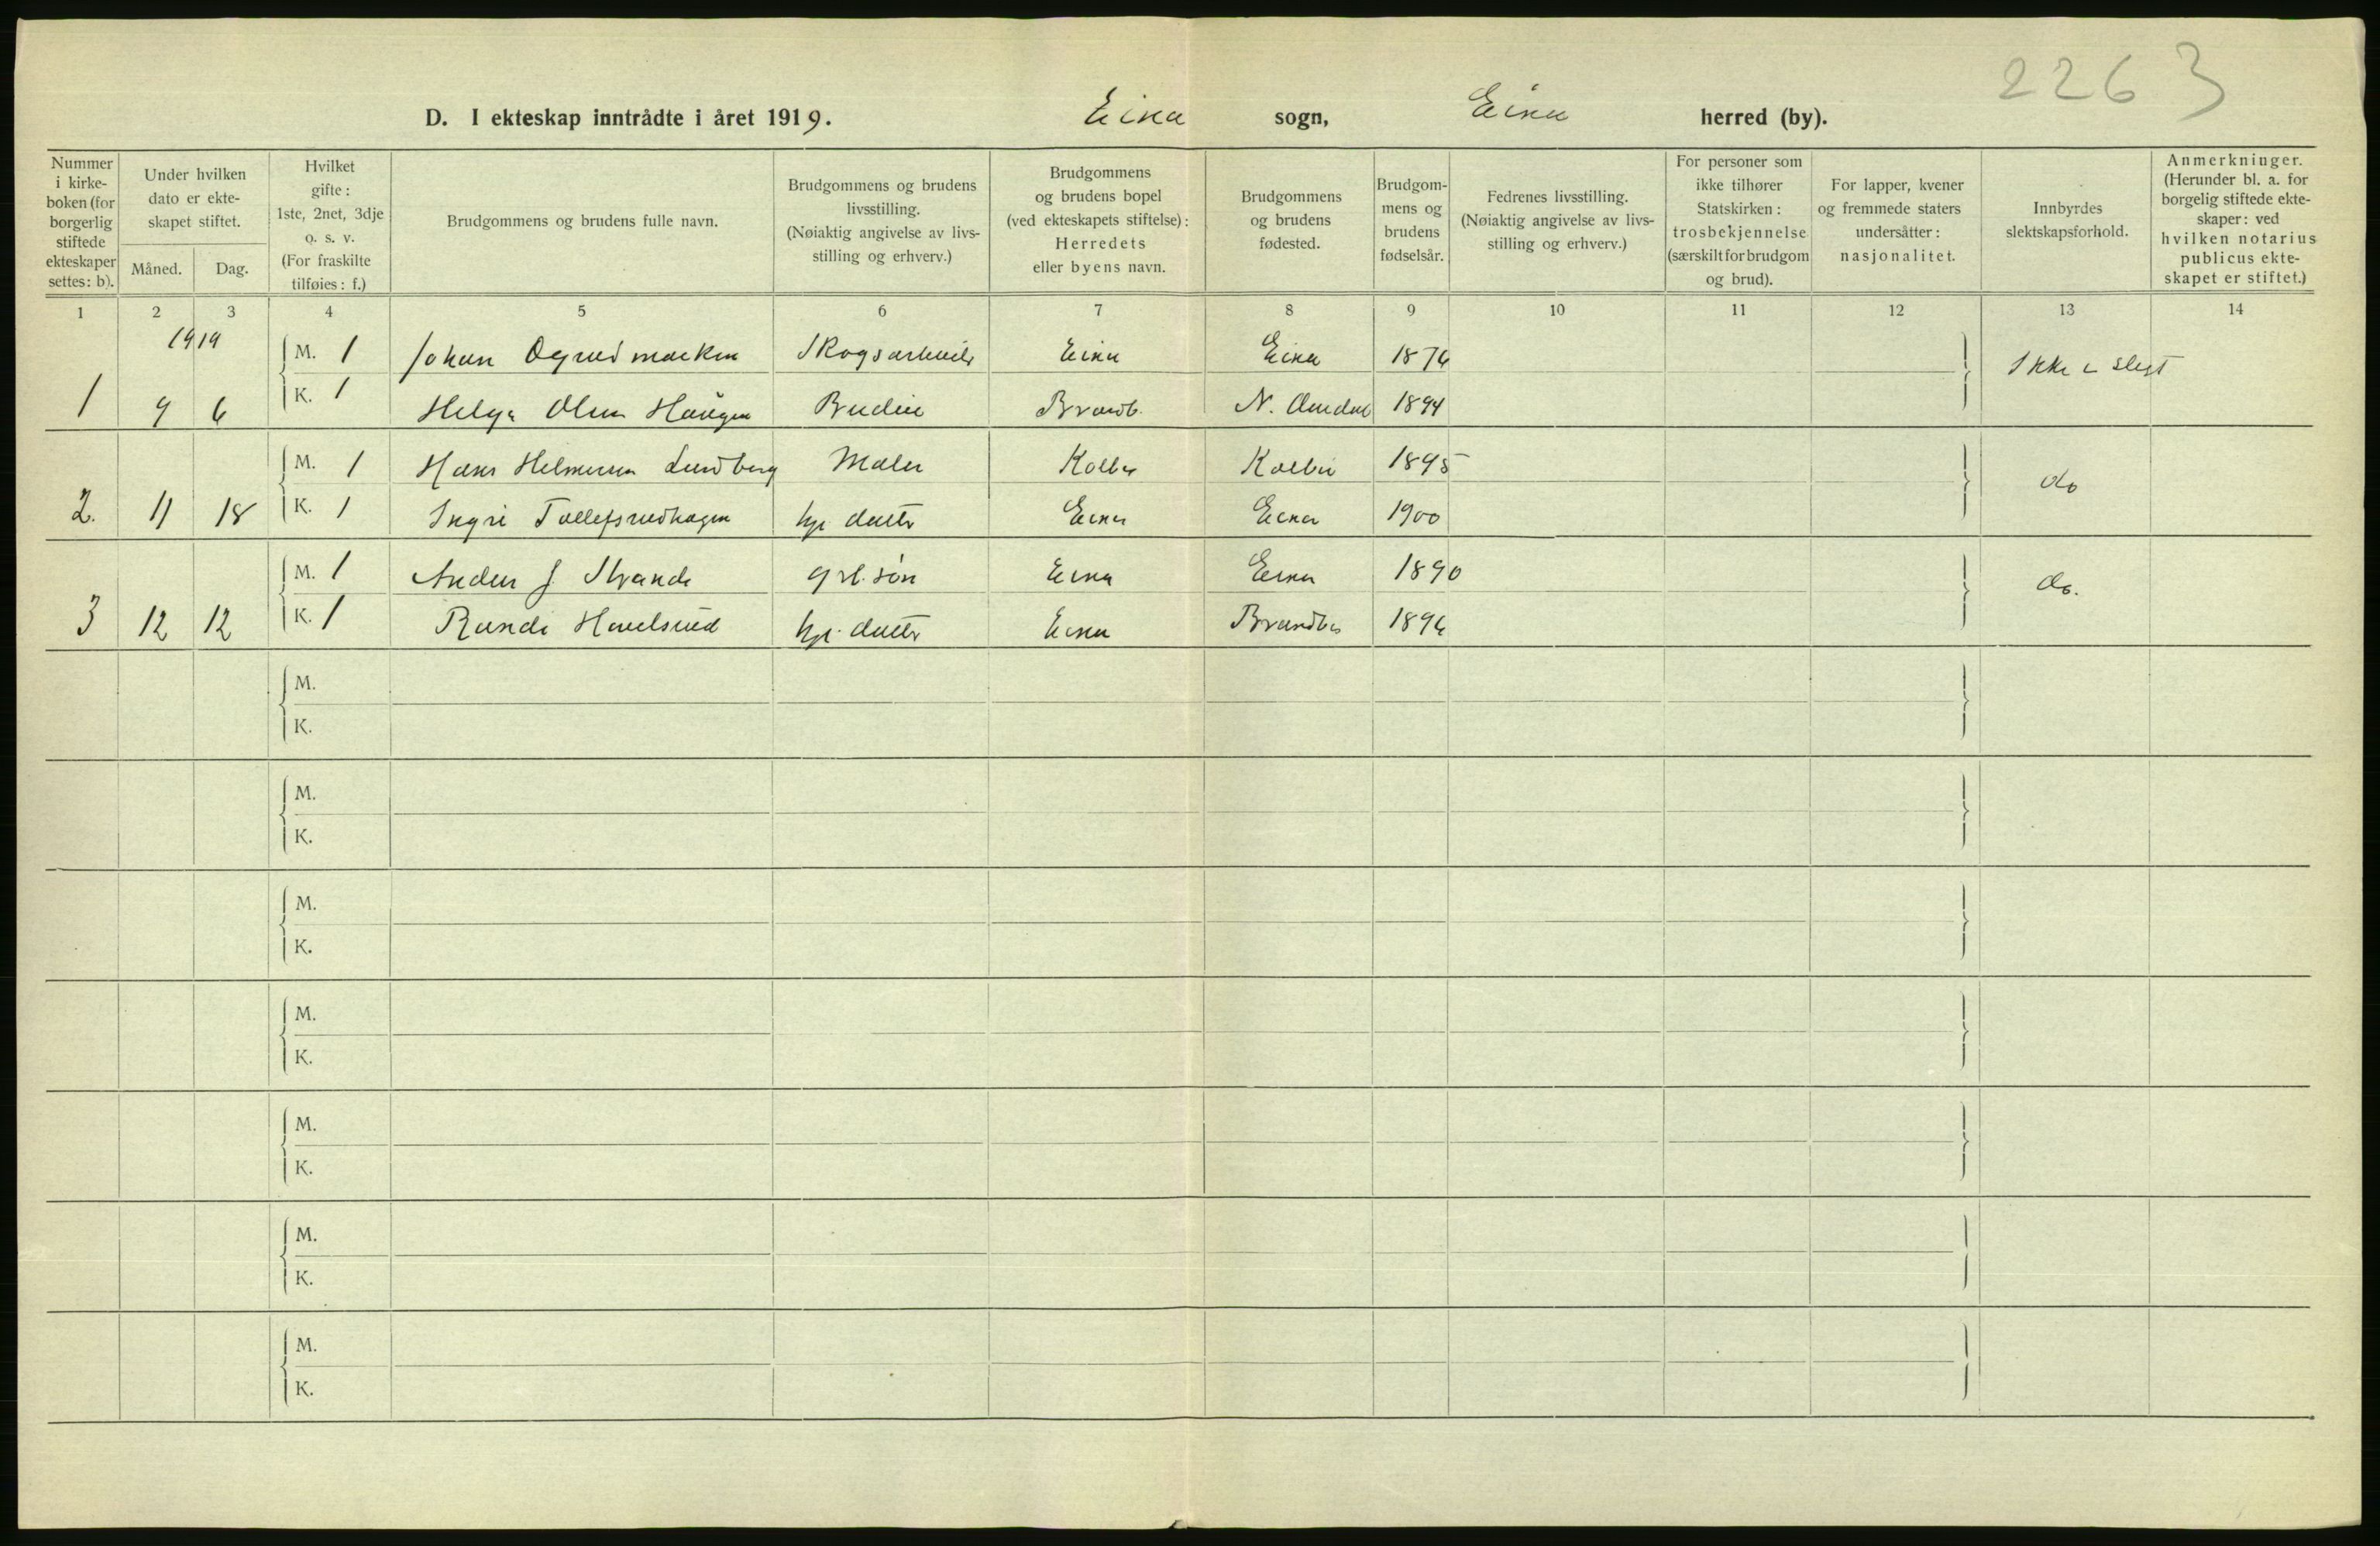 2263
D. I ekteskap inntrådte i året 1919. Eina sogn, Eina herred (by).
Nummer i kirke-boken (for borgerlig stiftede ekteskaper settes: b).
Under hvilken dato er ekte-skapet stiftet.
Måned. Dag.
Hvilket gifte: 1ste, 2net, 3dje o. s. v. (For fraskilte tilføies: f.)
Brudgommens og brudens fulle navn.
Brudgommens og brudens livsstilling. (Nøiaktig angivelse av livs-stilling og erhverv.)
Brudgommens og brudens bopel (ved ekteskapets stiftelse): Herredets eller byens navn.
Brudgommens og brudens fødested.
Brudgom-mens og brudens fødselsår.
Fedrenes livsstilling. (Nøiaktig angivelse av livs-stilling og erhverv.)
For personer som ikke tilhører Statskirken: trosbekjennelse (særskilt for brudgom og brud).
For lapper, kvener og fremmede staters undersåtter: nasjonalitet.
Innbyrdes slektskapsforhold.
Anmerkninger. (Herunder bl. a. for borgelig stiftede ekte-skaper: ved hvilken notarius publicus ekte-skapet er stiftet.)
1 2 3 4 5 6 7 8 9 10 11 12 13 14
1919
M. 1 Johan Eina Eina 1876 Ikke i slegt
1 9 6 K. 1 Helga Olsen Haugen Budeie Brandb. N. 1894
M. 1 Hans Helmersen Lundberg Maler Kolbu Kolbu 1895 do
2. 11 18 K. 1 Ingri Tollefsrudhagen datter Eina Eina 1900
M. 1 Anders J Strande grb. søn Eina Eina 1890 do.
3 12 12 K. 1 Randi datter Eina Brandbu 1896
M.
K.
M.
K.
M.
K.
M.
K.
M.
K.
M.
K.
M.
K.